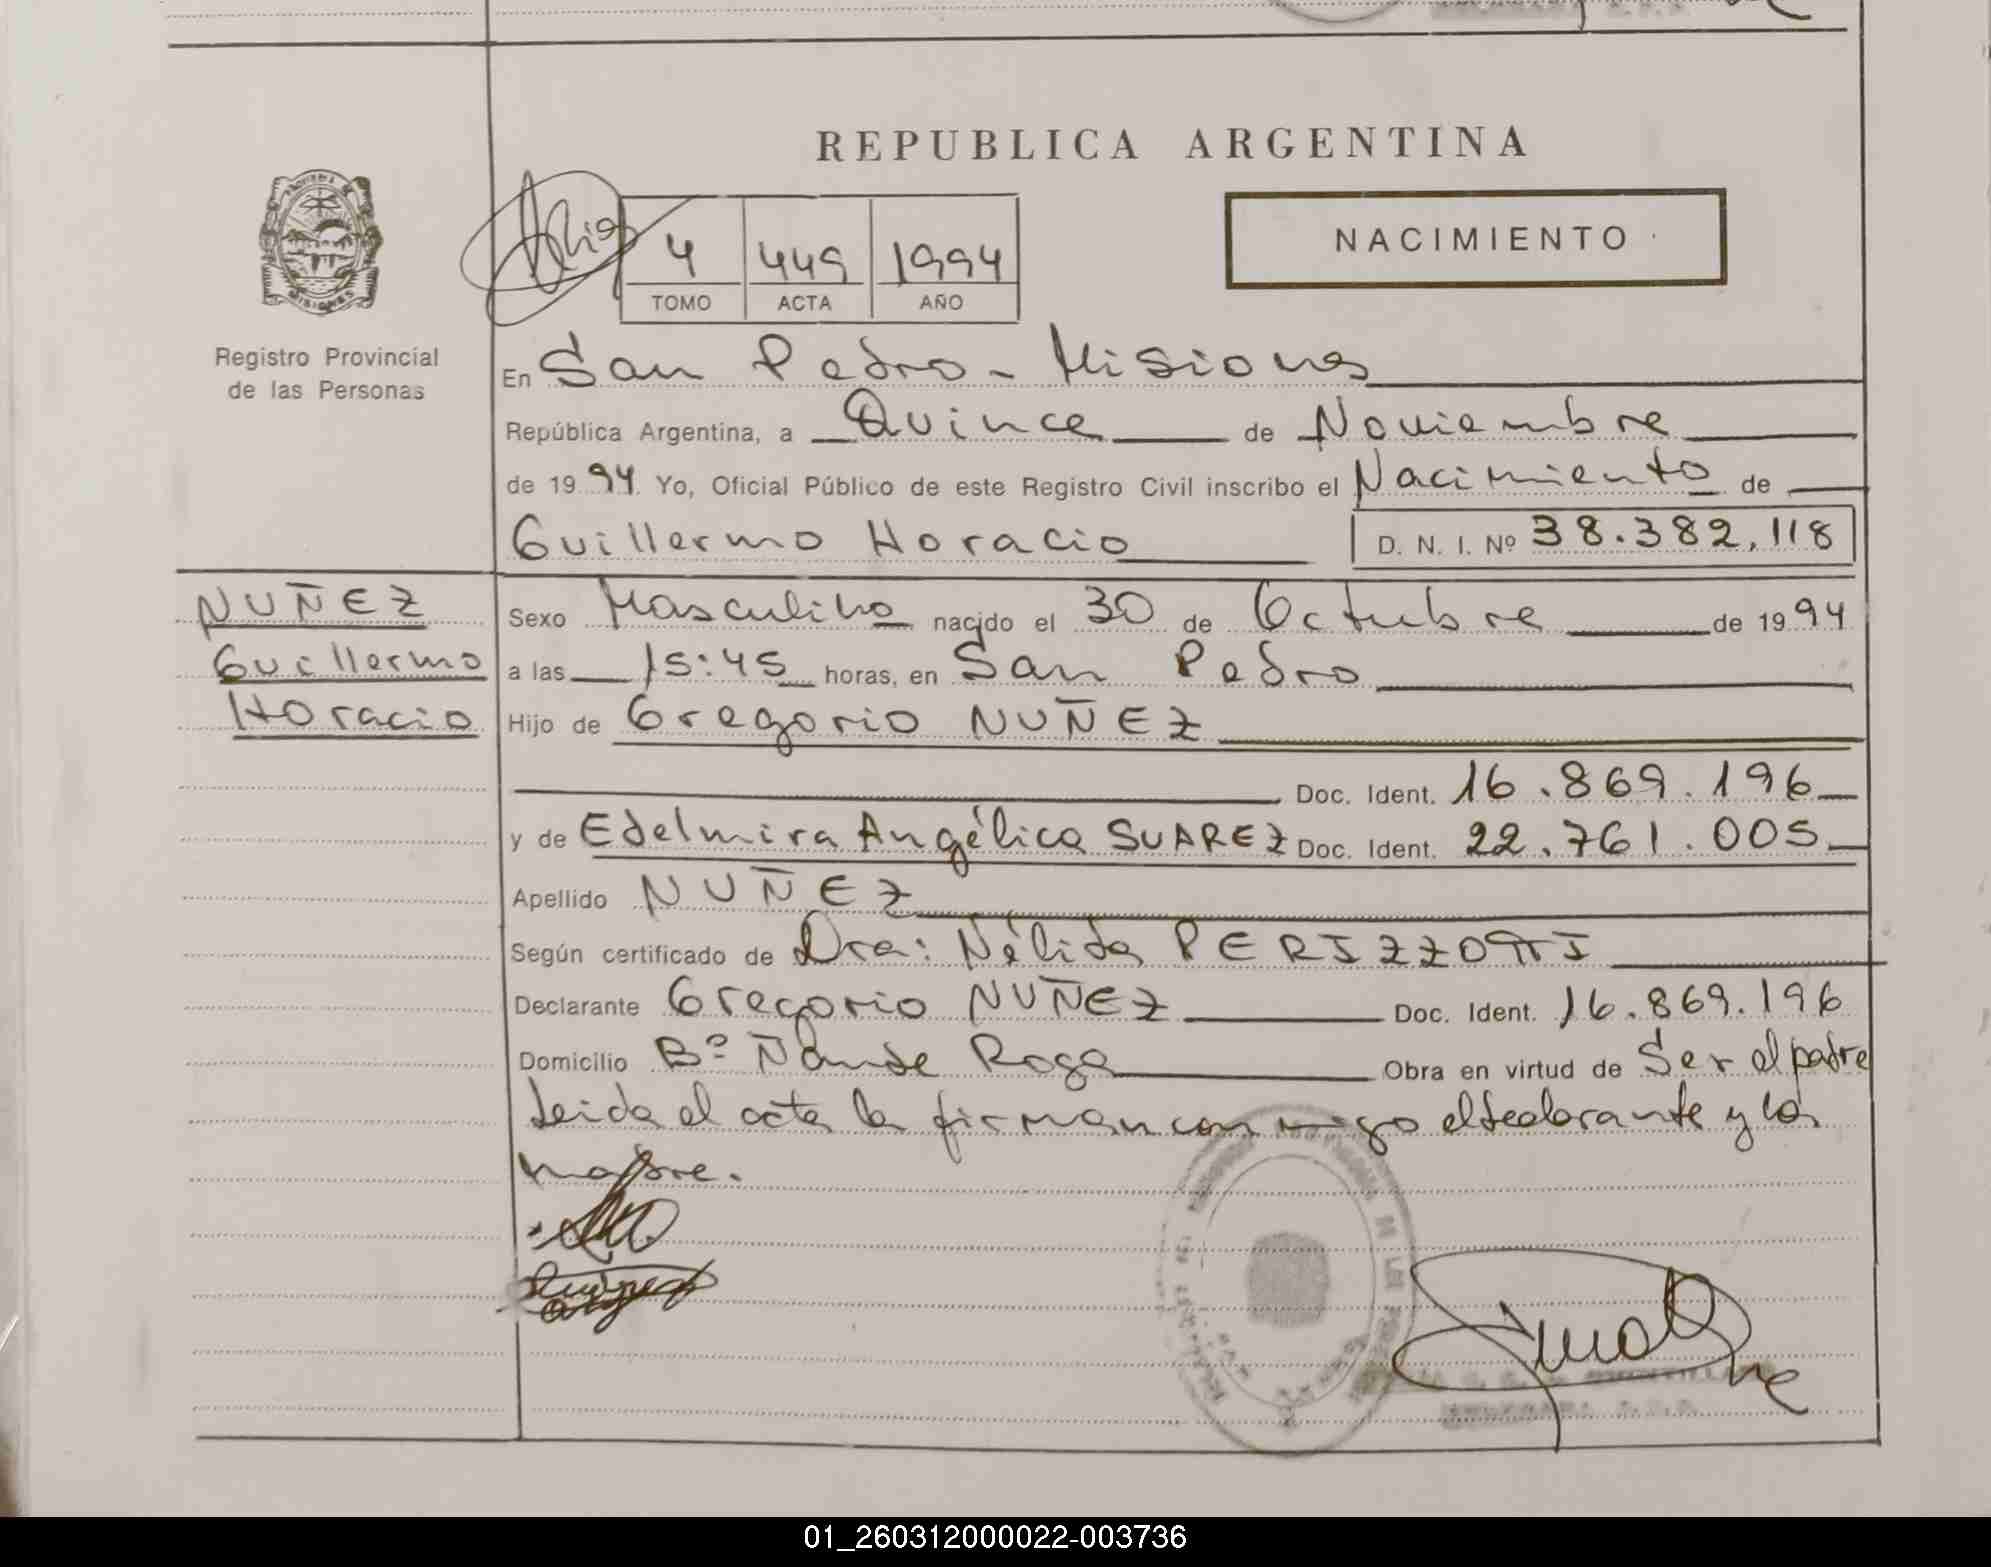 REPUBLICA ARGENTINA
NACIMIENTO
4 449 1994
TOMO ACTA AÑO
Registro Provincial
de las Personas
En San Pedro - Misiones
República Argentina, a Quince de Noviembre
de 1994. Yo, Oficial Público de este Registro Civil inscribo el Nacimiento de
Guillermo Horacio D. N. I. Nº 38.382,118
NUÑEZ
Guillermo
Horacio
Sexo Masculino nacido el 30 de Octubre de 1994
a las 15:45 horas, en San Pedro
Hijo de Gregorio NUÑEZ
Doc. Ident. 16.869.196
y de Edelmira Angélica SUAREZ Doc. Ident. 22.761.005
Apellido NUÑEZ
Según certificado de Dra: Nélida PERIZZOTTI
Declarante Gregorio NUÑEZ Doc. Ident. 16.869.196
Domicilio Bº Ñande Roga Obra en virtud de Ser el padre
Leida el acta la firman conmigo el declarante y la
madre.
01_260312000022-003736